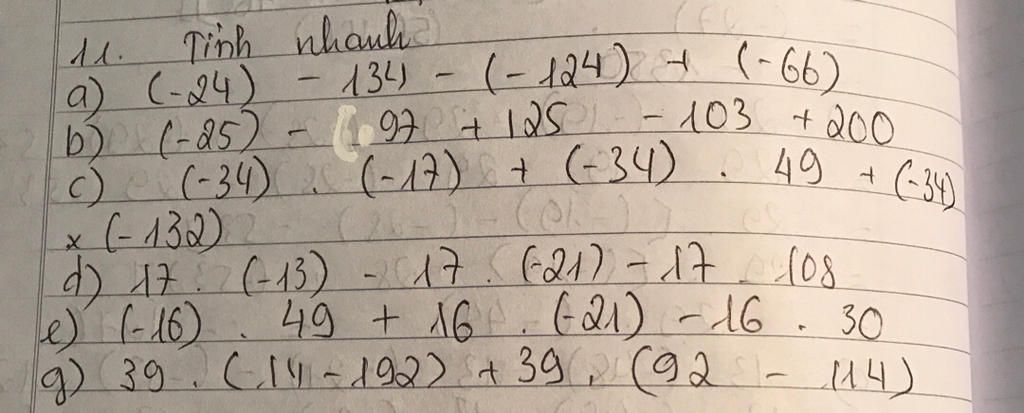 11. Tính nhanh
a) (-24) - 134 - (-124) + (-66)
b) (-25) - 97 + 125 - 103 + 200
c) (-34) . (-17) + (-34) . 49 + (-34)
x (-132)
d) 17 . (-13) - 17 . (-21) - 17 . 108
e) (-16) . 49 + 16 . (-21) - 16 . 30
g) 39 . (14 - 192) + 39 . (92 - 114)